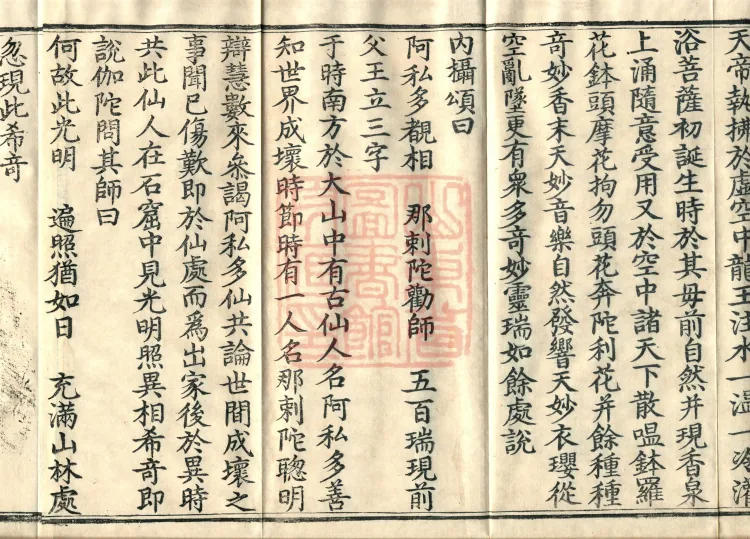 天帝執拂於虛空中龍王注水一温一冷灌
浴菩薩初誕生時於其母前自然井現香泉
上涌隨意受用又於空中諸天下散嗢鉢羅
花鉢頭摩花拘勿頭花奔陀利花并餘種種
奇妙香末天妙音樂自然發響天妙衣瓔從
空亂墜更有衆多奇妙靈瑞如餘處說
內攝頌曰
阿私多觀相　那剌陀勸師　五百瑞現前
父王立三字
于時南方於大山中有古仙人名阿私多善
知世界成壞時節時有一人名那剌陀聦明
辯慧數來叅謁阿私多仙共論世間成壞之
事聞已傷歎即於仙處而爲出家後於異時
共此仙人在石窟中見光明照異相希奇即
說伽陀問其師曰
何故此光明　遍照猶如日　充滿山林處
忽現此希奇